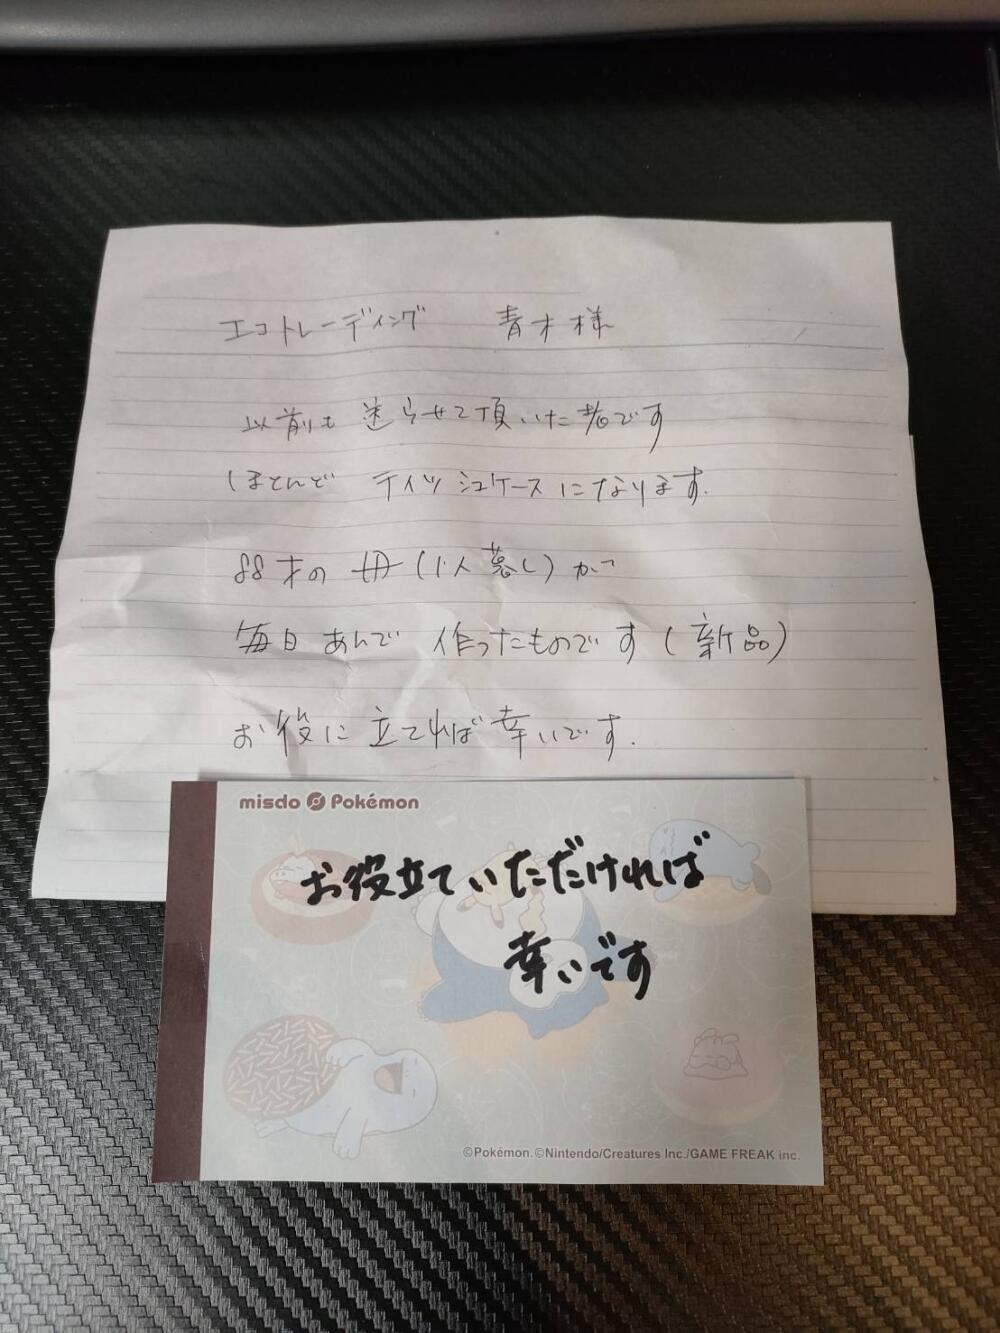 エコトレーディング 青木様
以前も送らせて頂いた者です
ほとんど ティッシュケースになります.
88才の母(1人暮し)が
毎日あんで 作ったものです(新品)
お役に立てれば幸いです.
misdo Pokémon
お役立ていただければ
幸いです
©Pokémon. ©Nintendo/Creatures Inc./GAME FREAK inc.